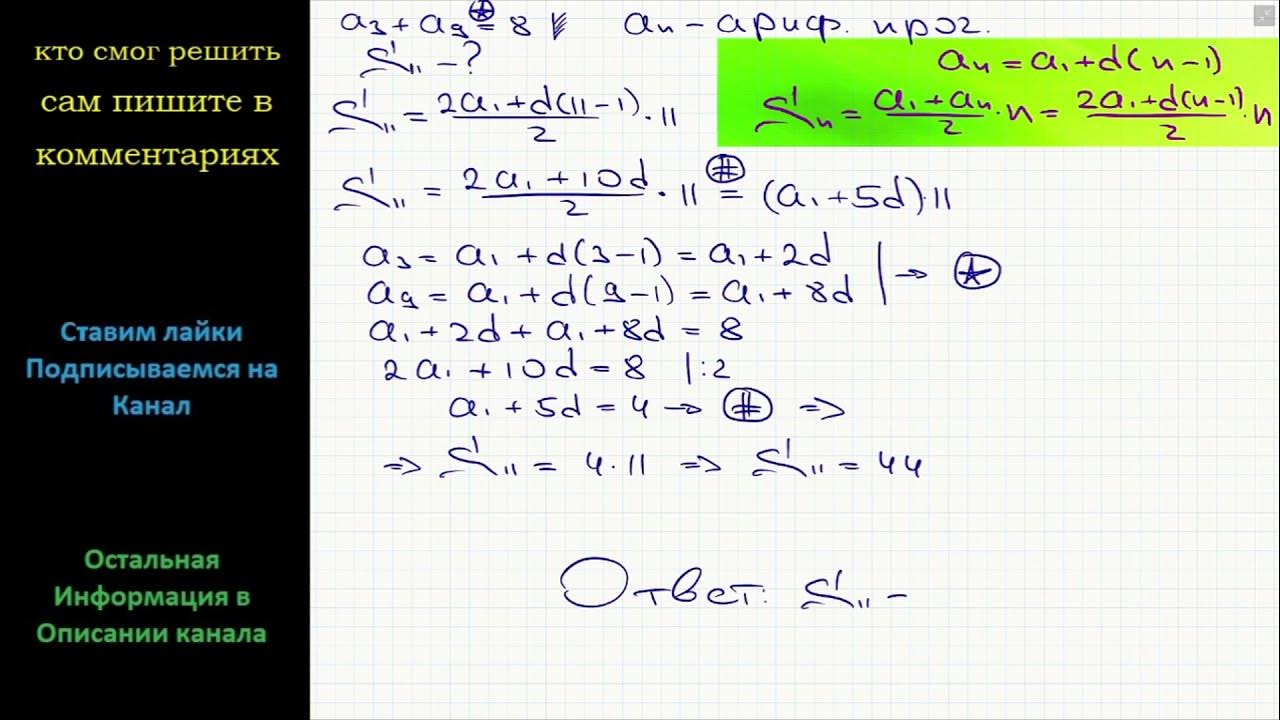 кто смог решить
сам пишите в
комментариях
Ставим лайки
Подписываемся на
Канал
Остальная
Информация в
Описании канала
a₃ + a₉ ⍟= 8 aₙ – ариф. прог.
S₁₁ – ?
aₙ = a₁ + d(n–1)
Sₙ = (a₁ + aₙ)/2 · n = (2a₁ + d(n–1))/2 · n
S₁₁ = (2a₁ + d(11–1))/2 · 11
S₁₁ = (2a₁ + 10d)/2 · 11 (#)= (a₁ + 5d)·11
a₃ = a₁ + d(3–1) = a₁ + 2d
a₉ = a₁ + d(9–1) = a₁ + 8d | → ⍟
a₁ + 2d + a₁ + 8d = 8
2a₁ + 10d = 8 |:2
a₁ + 5d = 4 → (#) ⇒
⇒ S₁₁ = 4·11 ⇒ S₁₁ = 44
Ответ: S₁₁ –